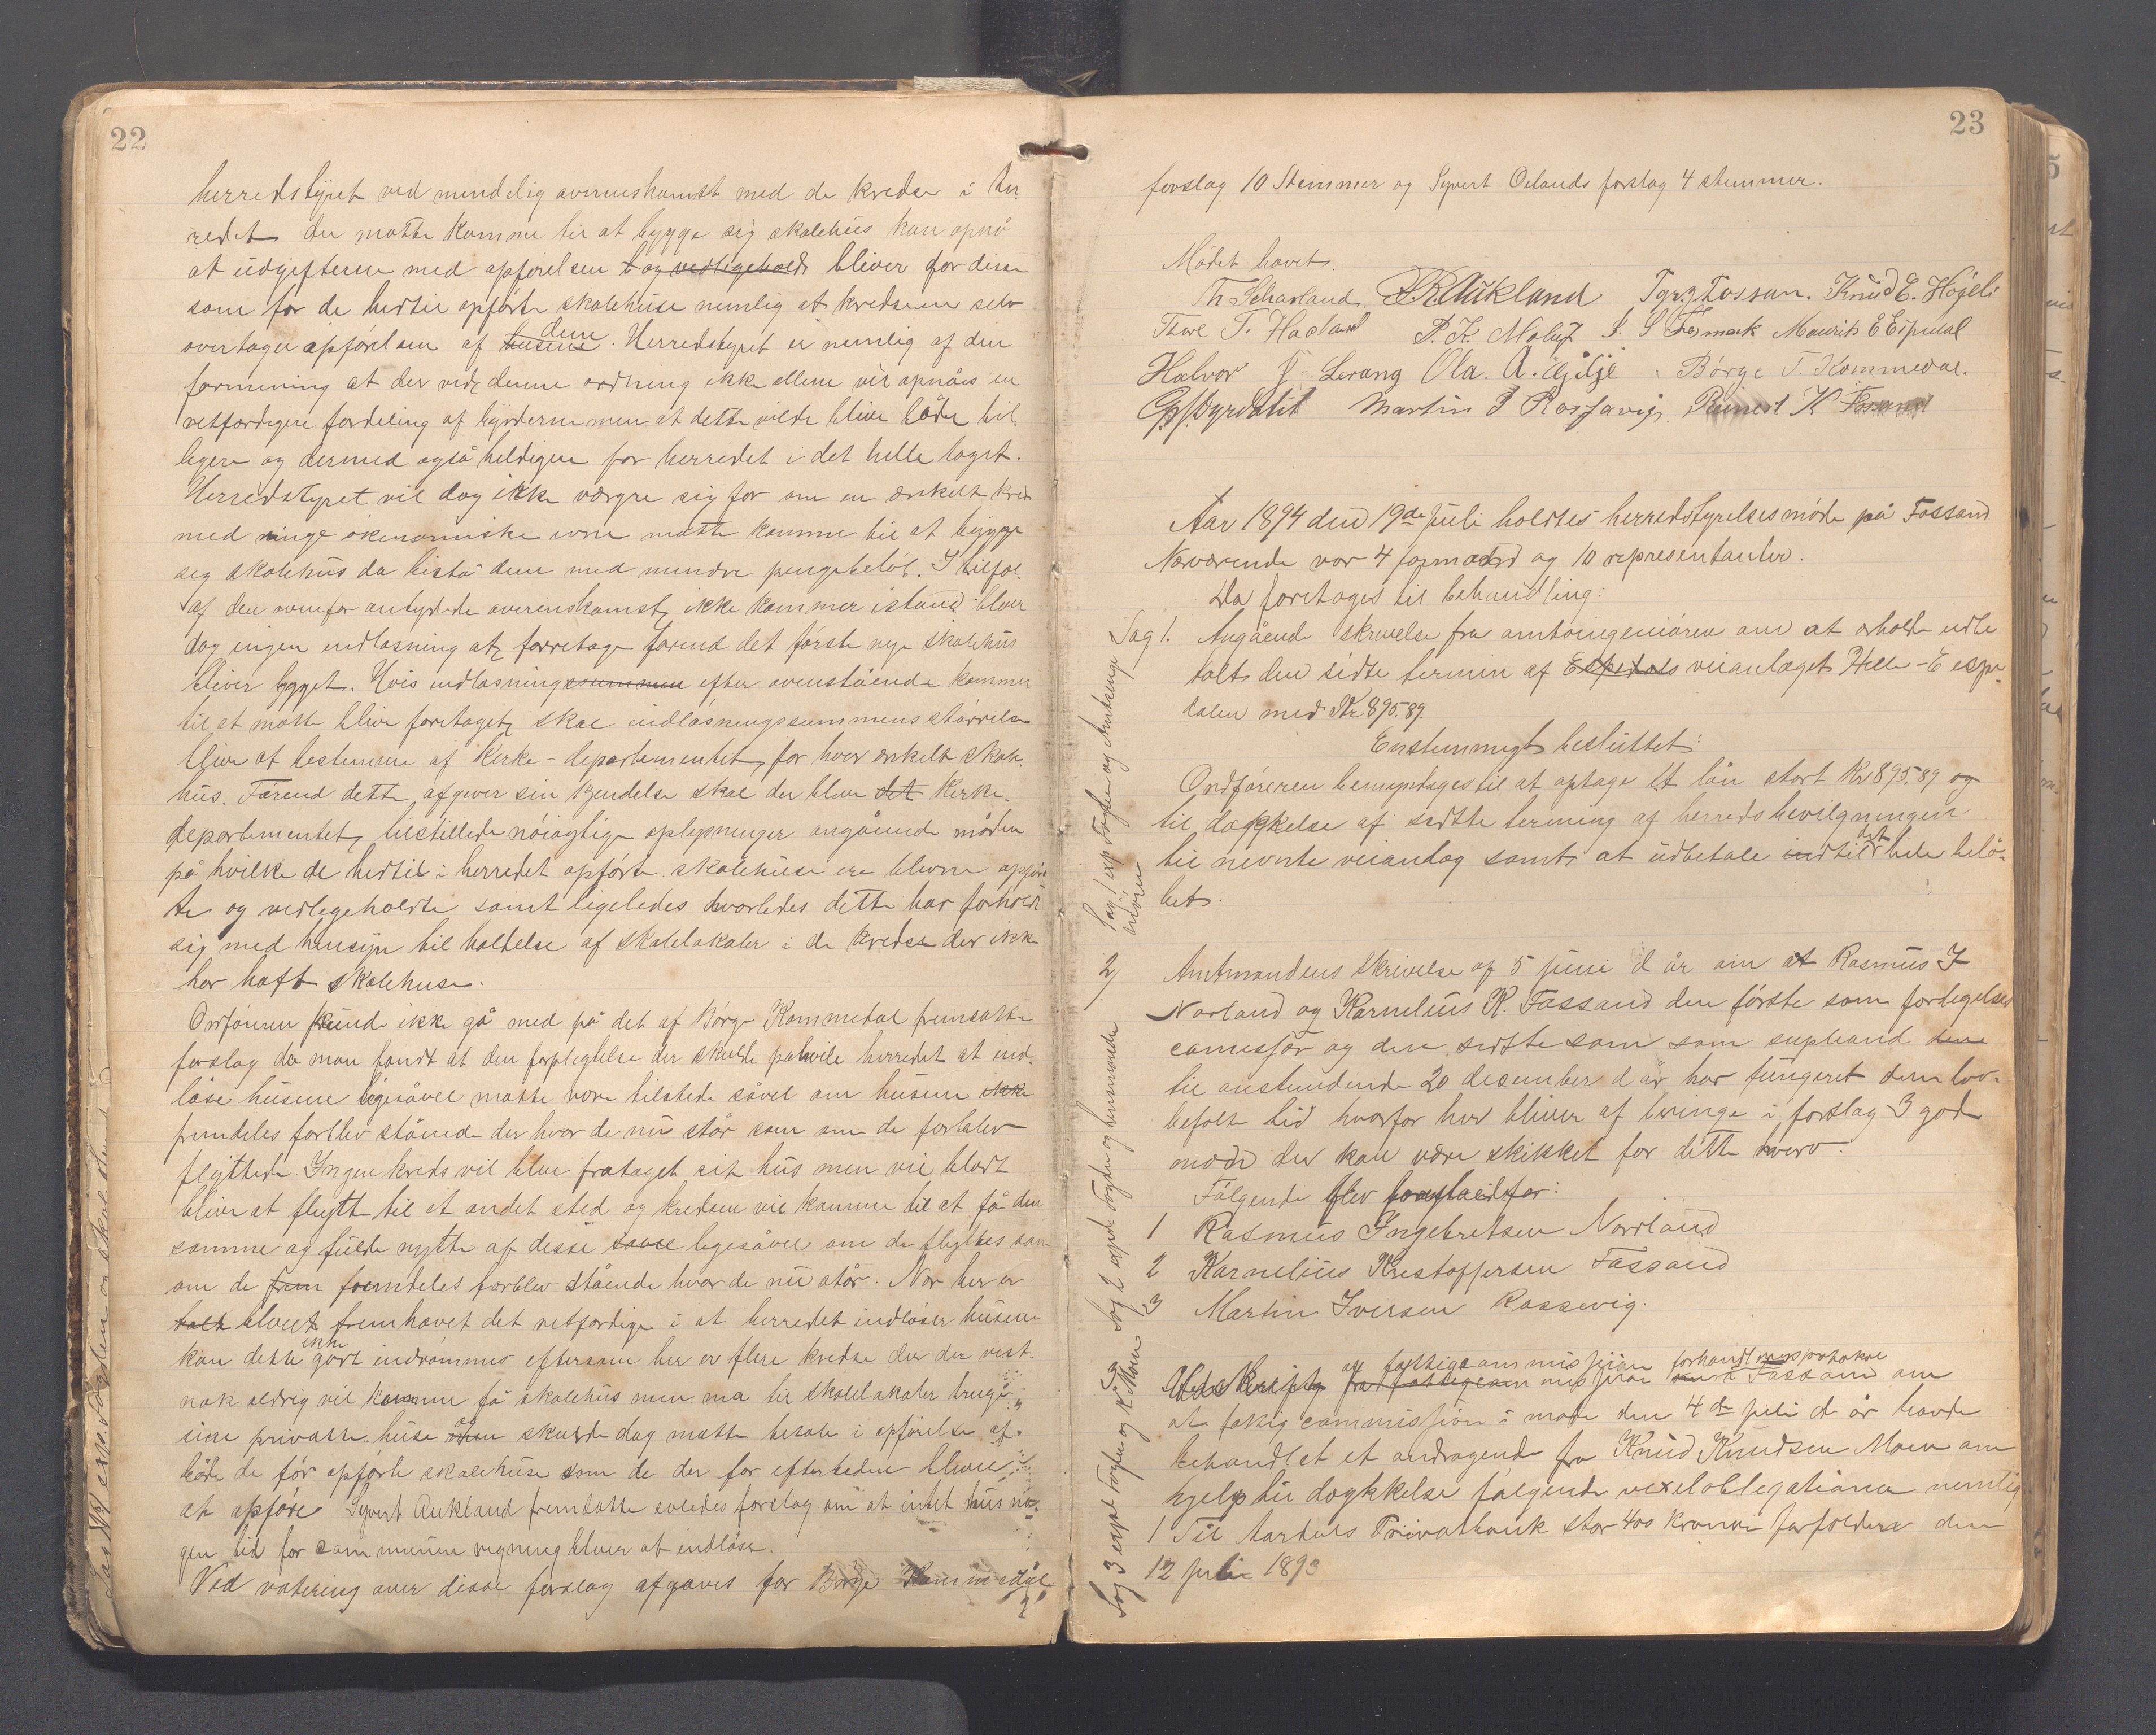 22
herredstyret ved mindelig overenskomst med de kredse i her
redet der måtte komme til at bygge sig skolehus kan opnå
at udgifterne med opførelsen og vedligehold bliver for disse
som for de hertil opførte skolehuse nemlig at kredsene selv
overtager opførelsen af husene dem. Herredstyret er nemlig af den
formening at der ved denne ordning ikke allene vil opnåes en
retfærdigere fordeling af byrderne men at dette vilde blive både bil
ligere og dermed også heldigere for herredet i det helle taget.
Herredstyret vil dog ikke værgre sig for om en enkelt kreds
med ringe økonomiske evne måtte komme til at bygge
sig skolehus da bistå dem med mindre pengebeløb. I tilfæl.
af den ovenfor antydede overenskomst ikke kommer istand bliver
dog ingen indløsning at forretage førend det første nye skolehus
bliver bygget. Hvis indløsningssummen efter ovenstående kommer
til at måtte blive foretaget skal indløsningssummens størrelse
blive at bestemme af Kirke-departementet for hver enkelt skole
hus. Førend dette afgiver sin kjendelse skal der blive det Kirke.
departementet tilstillede nøiagtige oplysninger angående måden
på hvilke de hertil i herredet opførte skolehuse ere blevne opfør
te og vedligeholdte samt ligeledes hvorledes dette har forholdt
sig med hensyn til holdelse af skolelokaler i de kredse der ikke
har haft skolehuse.
Ordføreren kunde ikke gå med på det af Børge Kommedal fremsatte
forslag da man fandt at den forpligtelse der skulde påhvile herredet at ind.
løse husene ligesåvel måtte være tilstede såvel om husene ikke
fremdeles forblev stående der hvor de nu står som om de forblev
flyttede. Ingen kreds vil blive frataget sit hus men vil blodt
blive at flyytt til et andet sted og kredsen vil komme til at få den
samme og fulde nytte af desse såvel ligesåvel om de flyttes som
om de frem fremdeles forblev stående hvor de nu står. Nor her er
talt blvet fremhævet det retfærdige i at herredet indløser husene
kan dette ikke gørt indrømmes eftersom her er flere kredse der der vist.
nok aldrig vil komme få skolehus men må til skolelokaler bruge
sine private huse og skulde dog måtte betale i opførelse af
både de før opførte skolehuse som de der for eftertiden bliver
at opføre Syvert Aukland fremsatte soledes forslag om at intet hus no.
gen tid for sammunens regning bliver at indløse.
Ved votering over disse forslag afgaves for Børge Kommedal
23
forslag 10 Stemmer og Syvert Oelands forslag 4 stemmer.
Mødet hævet.
Th. Scharland. S. R. Aukland Tørg Tossan. Knud E. Högeli
Tore T. Haaland P. K. Molaug S. S Fosmark Maurits E Espedal
Halvor Lerang Ola. A. Gilje Børge T. Kommedal.
Dyrdalit Martin I Rossavig. K Fossand
Aar 1894 den 19de Juli holdtes herredstyrelsesmøde på Fossand
Nærværende var 4 formænd og 10 representanter.
Da foretages til behandling:
Sag 1. Angående skrivelse fra amtsingeniøren om at erholde udbe
talt den sidte termin af Espedals veianlæget Helle-Eespe
dalen med Kr 895.89.
Enstemmigt besluttet:
Ordføreren bemyndiges til at optage et lån stort Kr 895.89 og
til dækkelse af sidtte terming af herredsbevilgningen
til nevnte veianlæg samt at udbetale indtil det hele belø.
bet.
2) Amtmandens skrivelse af 5 juni d år om at Rasmus I
Norland og Karnelius K. Fossand den første som forligelses
comisjør og den sidtte som som supleand dene
til anstundende 20 desember d år har fungeret dem lov.
befalt tid hvorfor her bliver af bringe i forslag 3 gode
mænd der kan være skikket for dette hverv.
Følgende blev foreslaaed for:
1 Rasmus Ingebretsen Norland
2 Karnelius Kristoffersen Fossand
3 Martin Iversen Rossevig.
Udskrift af fattigcommisjion forhandlingsprotokol fra fattigcommisjion i Fossand om
at fattigcommissjon i møde den 4de juli d år havde
behandlet et andragende fra Knud Knudsen Moen om
hjelp til dækkelse følgende vexelobligationer nemlig
1 Til Aardals Privatbank stor 400 kroner forfalden den
12 juli 1893
Sag 1 exp Fogden og Amtsinge
niøren
Sag 2 exped. Fogden og hermænde
Sag 3 exped Fogden og K K Moen